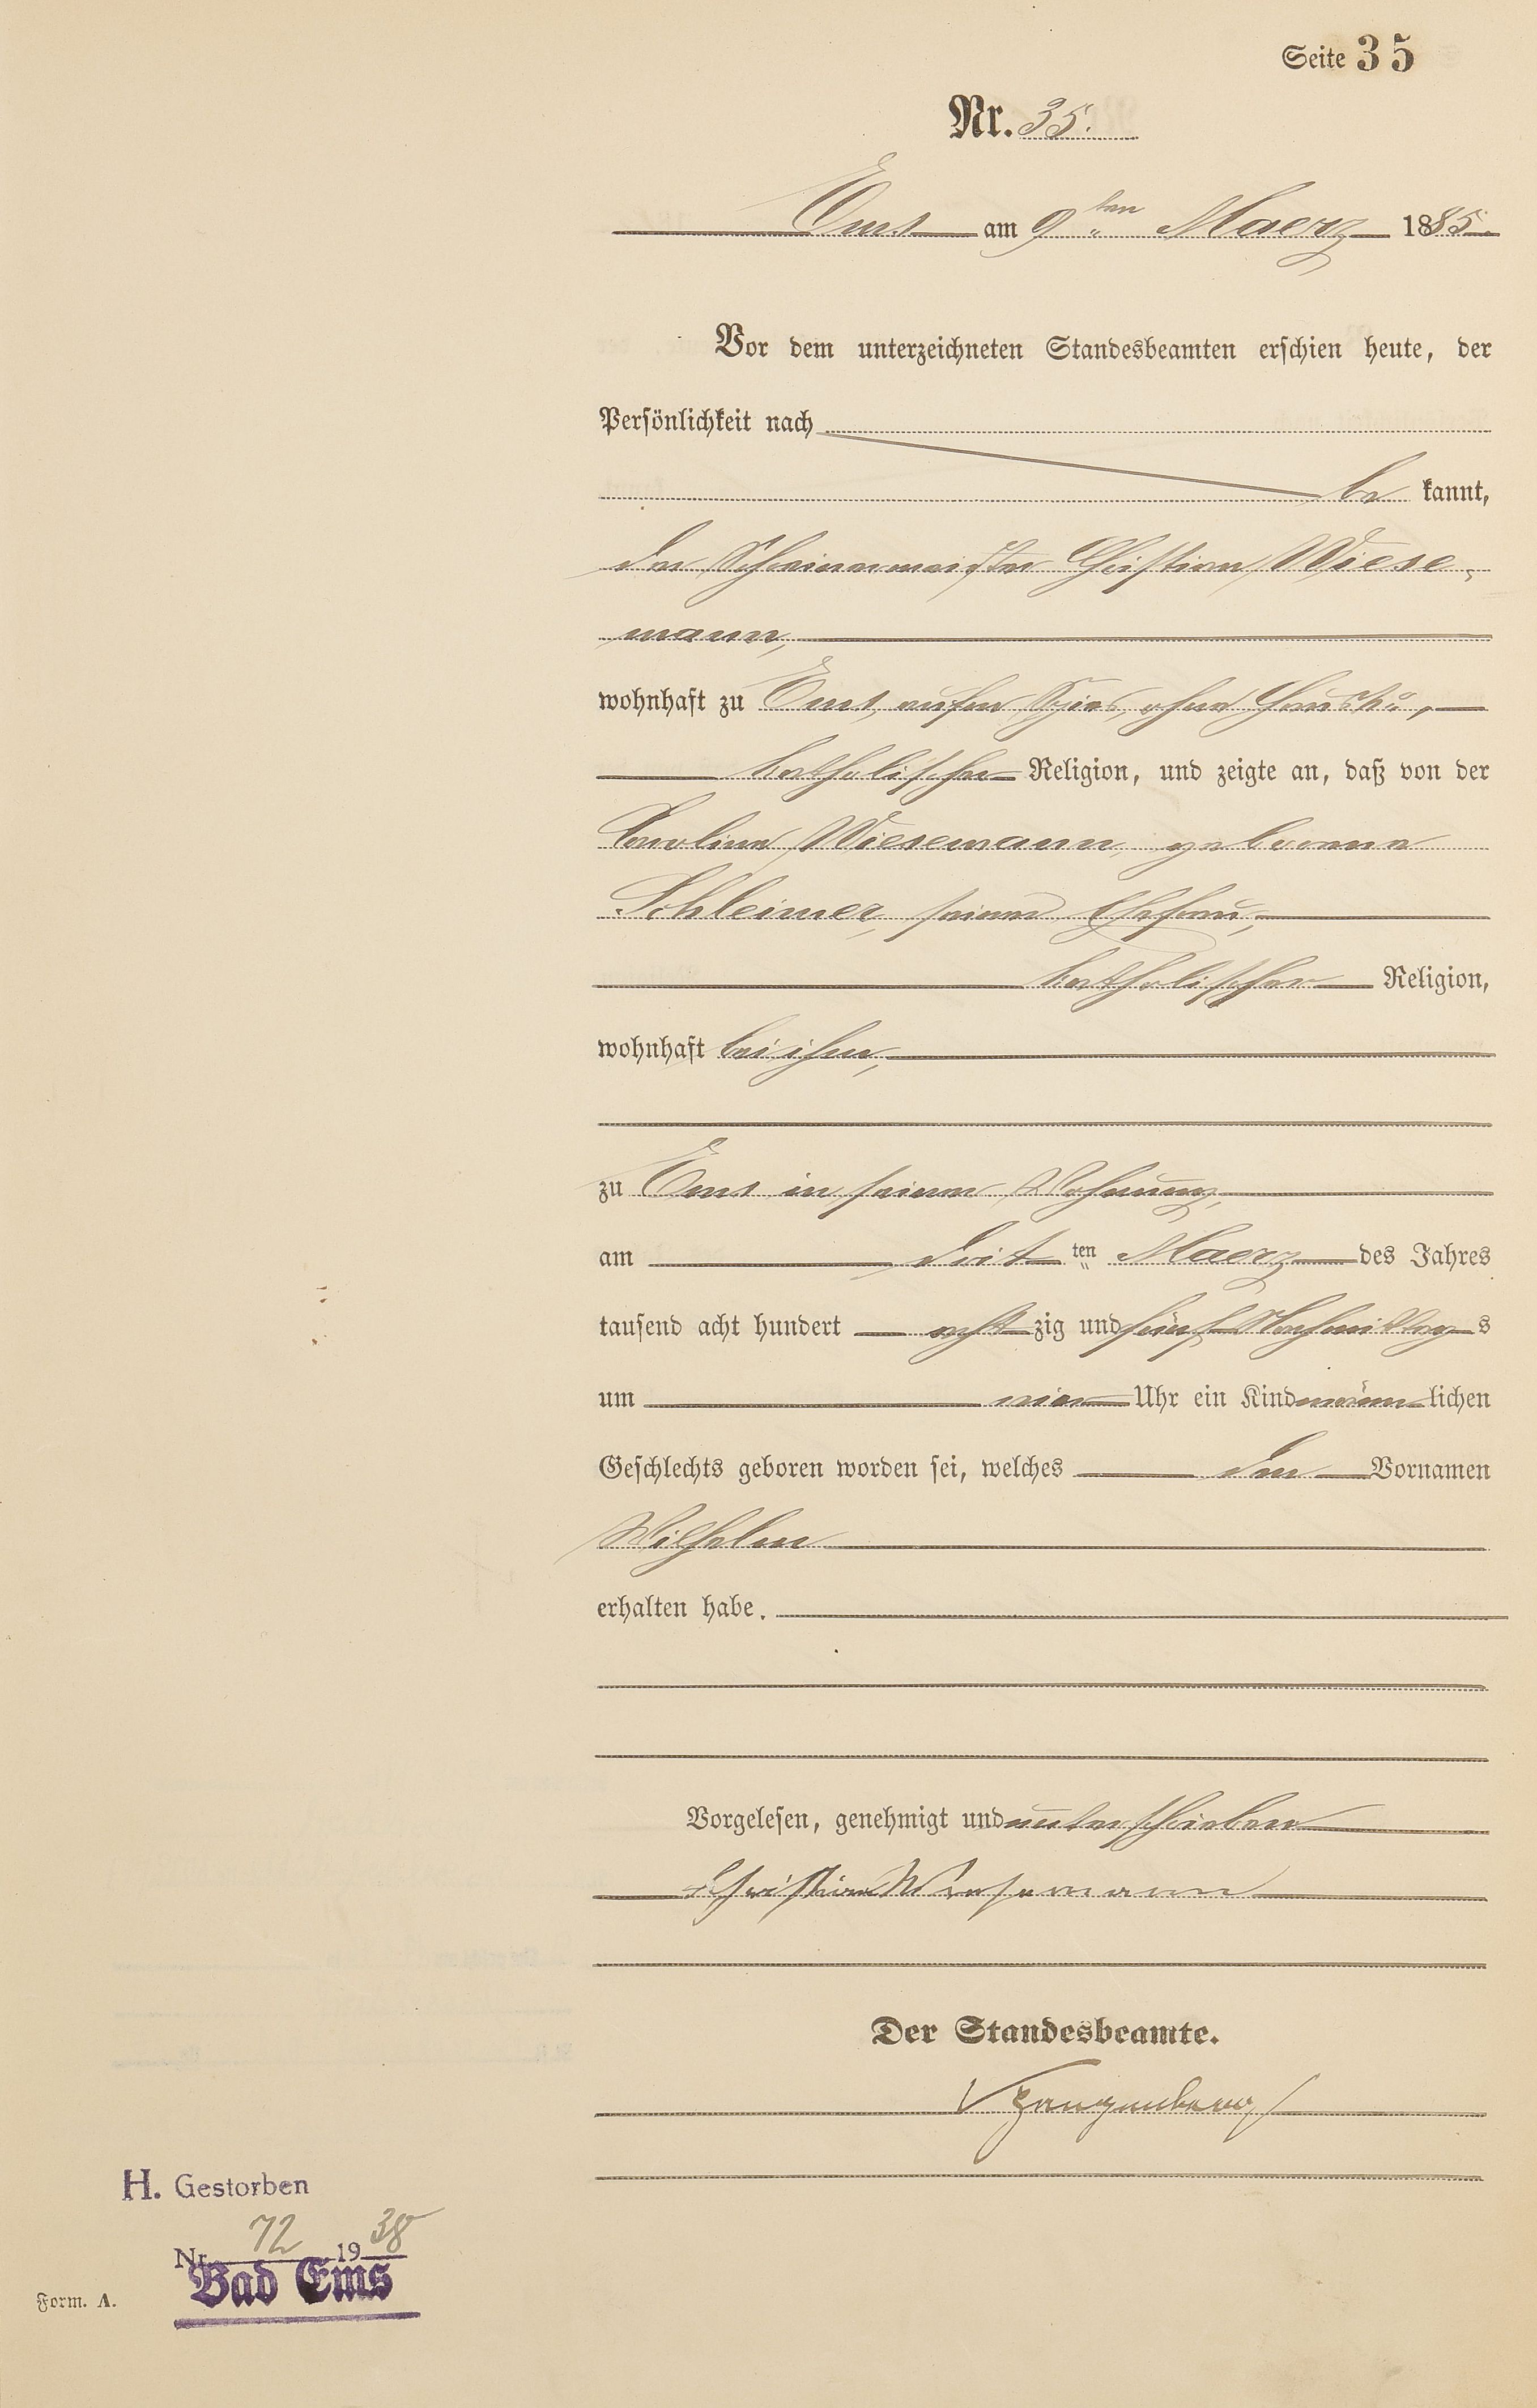 Seite 35
Nr. 35.
Ems am 9ten Maerz 1885.
Vor dem unterzeichneten Standesbeamten erschien heute, der
Persönlichkeit nach
be kannt,
der Schreinermeister Christian Wiese-
mann,
wohnhaft zu Ems, aufm Spies, ohne Haus No,
katholischer Religion, und zeigte an, daß von der
Caroline Wiesemann, geborene
Schleimer, seiner Ehefrau,
katholischer Religion,
wohnhaft bei ihm,
zu Ems in seiner Wohnung,
am drit ten Maerz des Jahres
tausend acht hundert acht zig und fünf Nachmittag s
um vier Uhr ein Kind männ lichen
Geschlechts geboren worden sei, welches den Vornamen
Wilhelm
erhalten habe.
Vorgelesen, genehmigt und unterschrieben
Christian Wiesemann
Der Standesbeamte.
Spangenberg
H. Gestorben
Nr. 72 19 38
Bad Ems
Form. A.